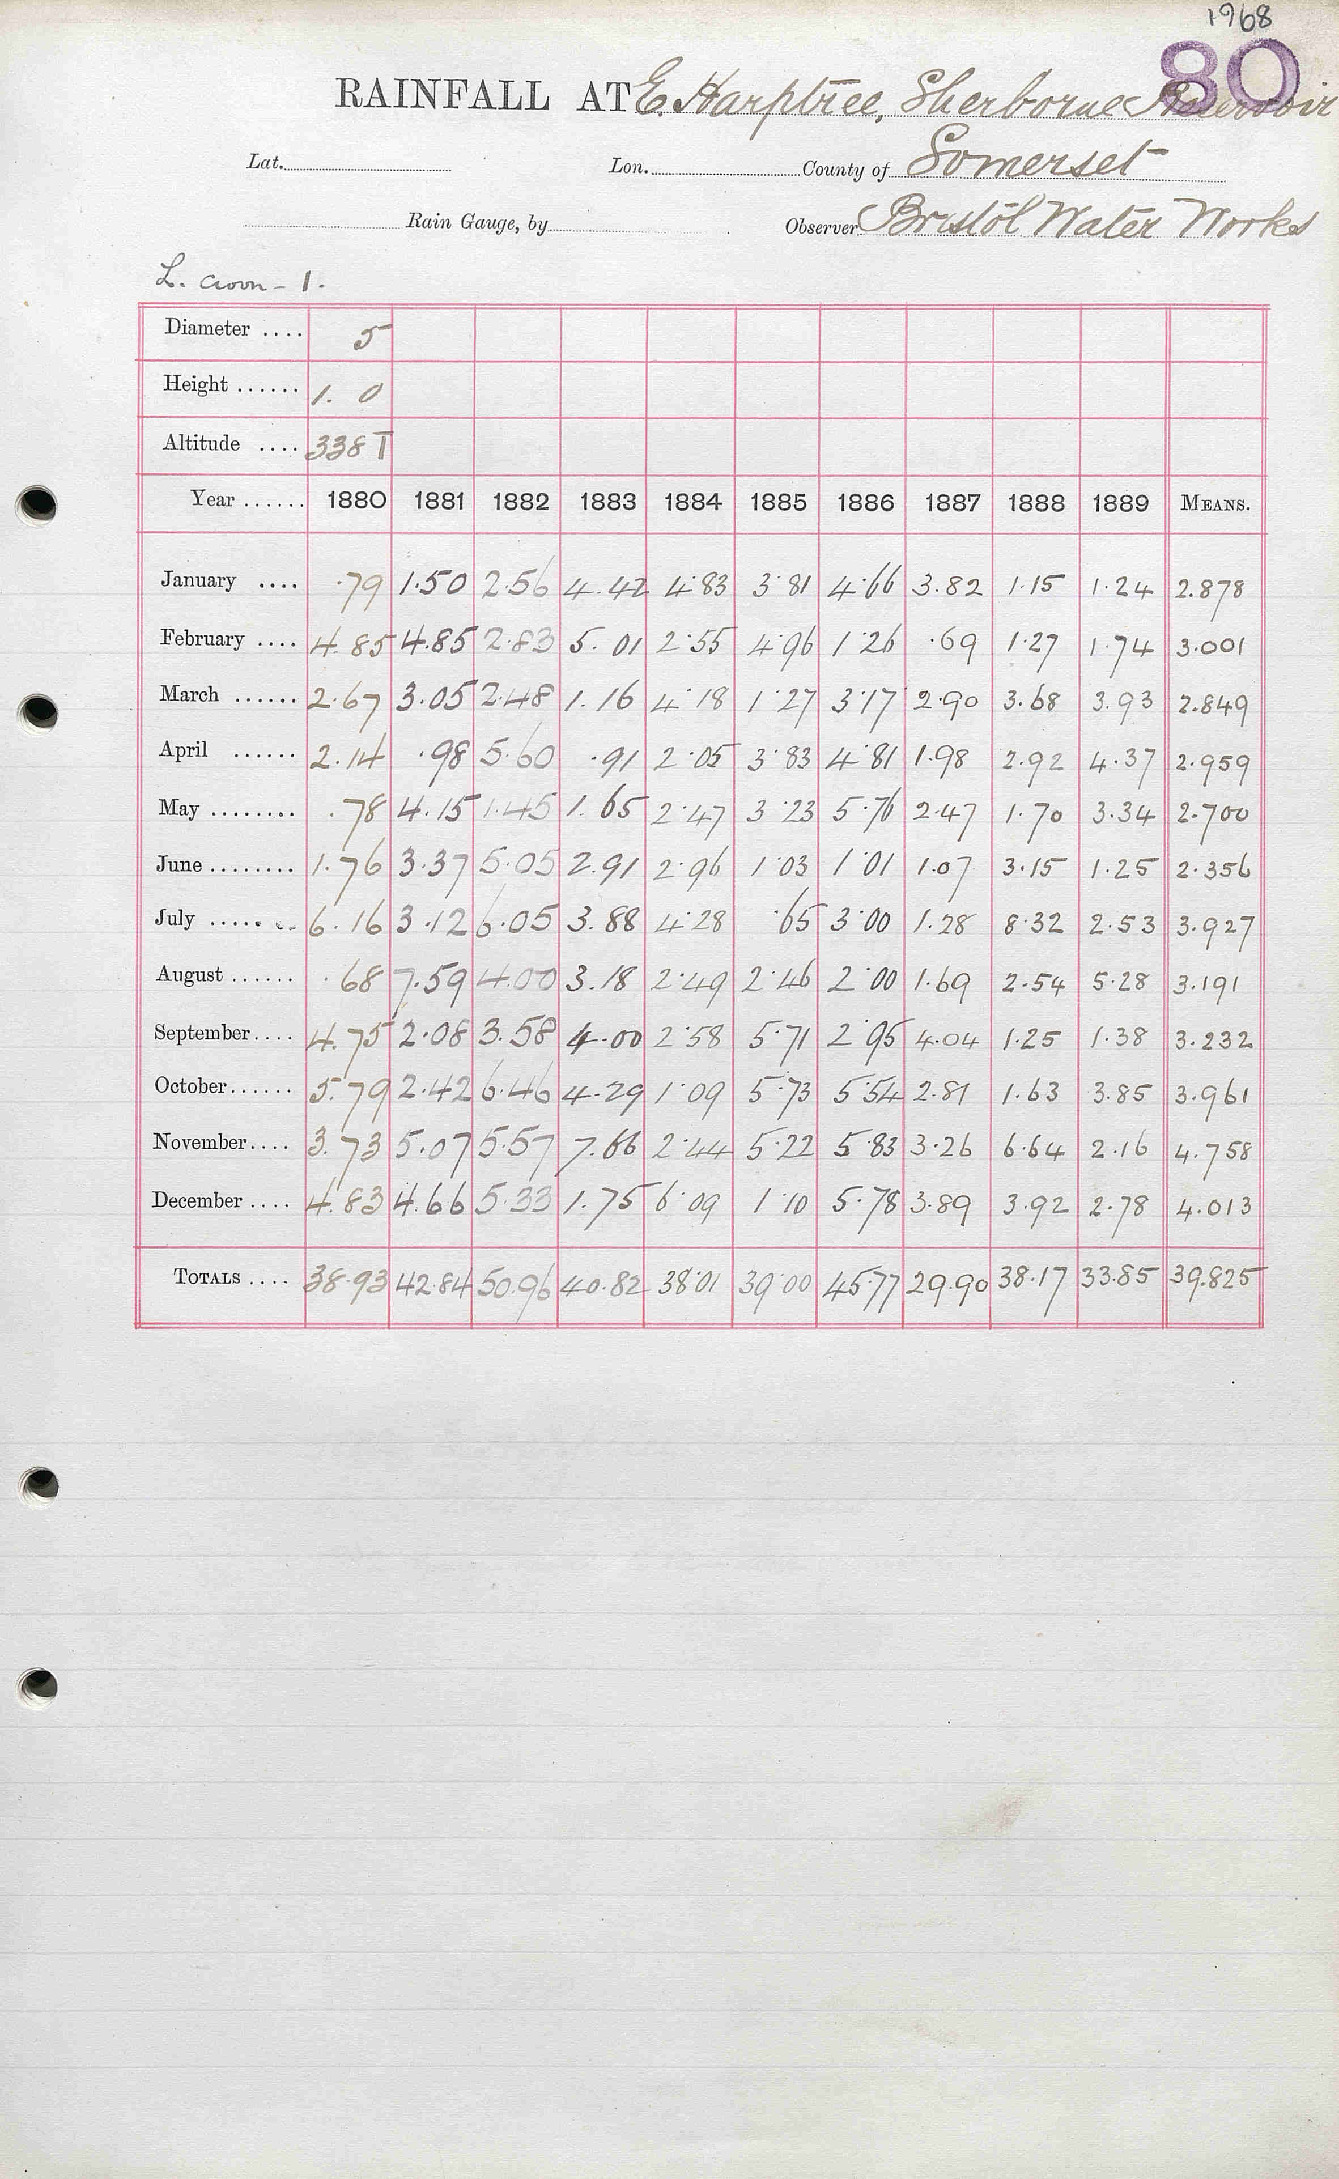 1968
80
RAINFALL AT E. Harptree, Sherborne Reservoir
Lat. Lon. County of Somerset
Rain Gauge, by Observer Bristol Water Works
L. Avon - 1.
Diameter .... 5
Height ...... 1. 0
Altitude .... 338 T
Year ...... 1880 1881 1882 1883 1884 1885 1886 1887 1888 1889 MEANS.
January .... .79 1.50 2.56 4.42 4.83 3.81 4.66 3.82 1.15 1.24 2.878
February .... 4.85 4.85 2.83 5.01 2.55 4.96 1.26 .69 1.27 1.74 3.001
March ...... 2.67 3.05 2.48 1.16 4.18 1.27 3.17 2.90 3.68 3.93 2.849
April ...... 2.14 .98 5.60 .91 2.05 3.83 4.81 1.98 2.92 4.37 2.959
May ........ .78 4.15 1.45 1.65 2.47 3.23 5.76 2.47 1.70 3.34 2.700
June ........ 1.76 3.37 5.05 2.91 2.96 1.03 1.01 1.07 3.15 1.25 2.356
July ........ 6.16 3.12 6.05 3.88 4.28 .65 3.00 1.28 8.32 2.53 3.927
August ...... .68 7.59 4.00 3.18 2.49 2.46 2.00 1.69 2.54 5.28 3.191
September .... 4.75 2.08 3.58 4.00 2.58 5.71 2.95 4.04 1.25 1.38 3.232
October ...... 5.79 2.42 6.46 4.29 1.09 5.73 5.54 2.81 1.63 3.85 3.961
November .... 3.73 5.07 5.57 7.66 2.44 5.22 5.83 3.26 6.64 2.16 4.758
December .... 4.83 4.66 5.33 1.75 6.09 1.10 5.78 3.89 3.92 2.78 4.013
TOTALS .... 38.93 42.84 50.96 40.82 38.01 39.00 45.77 29.90 38.17 33.85 39.825